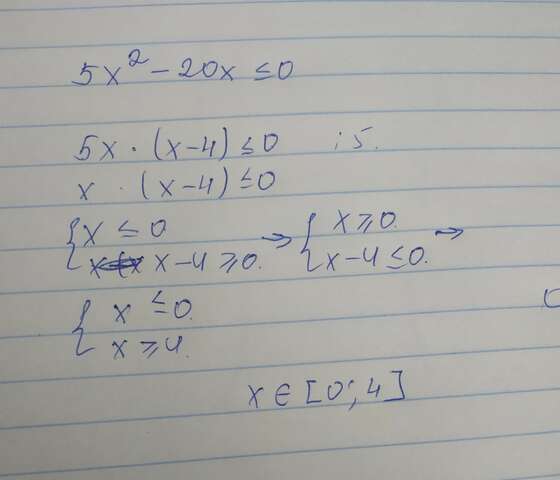 5x² - 20x ≤ 0
5x · (x-4) ≤ 0 :5.
x · (x-4) ≤ 0
{ x ≤ 0 → { x ≥ 0.
x-4 ≥ 0. x-4 ≤ 0. →
{ x ≤ 0.
x ≥ 4.
x ∈ [0; 4]